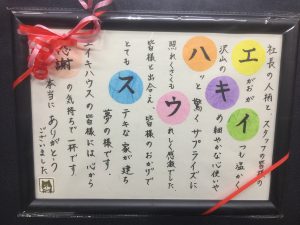 社長の人柄と スタッフの皆様の
エがおが イつも温かく
沢山の キめ細やかな心使いや
ハッと驚くサプライズに
照れくさくも ウれしく感激でした
皆様と出会え 皆様のおかげで
とても ステキな家が建ち
夢の様です。
エイキハウスの皆様には心から
感謝の気持ちで一杯です
本当に ありがとう
ございました